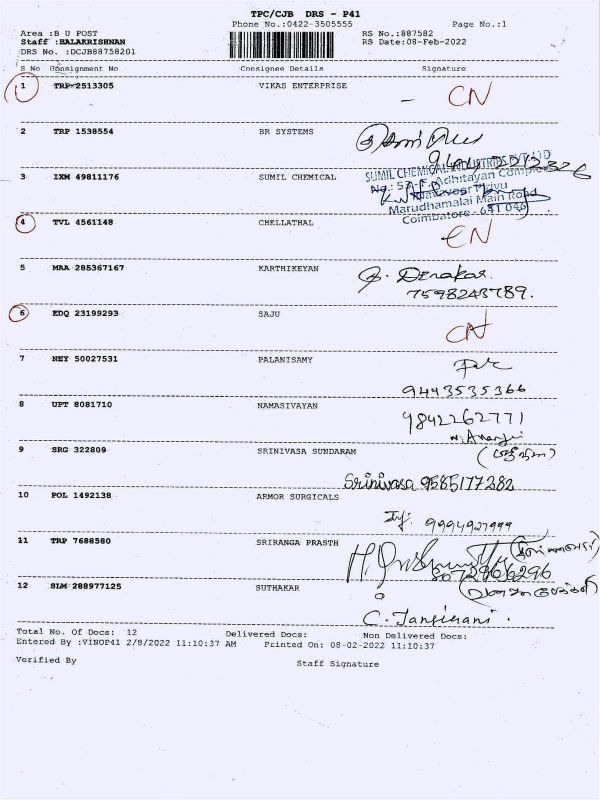 TPC/CJB DRS - P41
Phone No.:0422-3505555 Page No.:1
Area :B U POST RS No.:887582
Staff :BALAKRISHNAN RS Date:08-Feb-2022
DRS No. :DCJB88758201
S No Consignment No Consignee Details Signature
1 TRP 2513305 VIKAS ENTERPRISE - CN
2 TRP 1538554 BR SYSTEMS
3 IXM 49811176 SUMIL CHEMICAL
SUMIL CHEMICAL INDUSTRIES PVT LTD
Marudhamalai Main Road
Coimbatore - 641 046
4 TVL 4561148 CHELLATHAL CN
5 MAA 285367167 KARTHIKEYAN
7598243789.
6 EDQ 23199293 SAJU CN
7 NEY 50027531 PALANISAMY
9443535366
8 UPT 8081710 NAMASIVAYAN
9842262771
9 SRG 322809 SRINIVASA SUNDARAM
Srinivasa 9585177282
10 POL 1492138 ARMOR SURGICALS
9994927999
11 TRP 7688580 SRIRANGA PRASTH
8072966296
12 SLM 288977125 SUTHAKAR
Total No. Of Docs: 12 Delivered Docs: Non Delivered Docs:
Entered By :VINOP41 2/8/2022 11:10:37 AM Printed On: 08-02-2022 11:10:37
Verified By Staff Signature